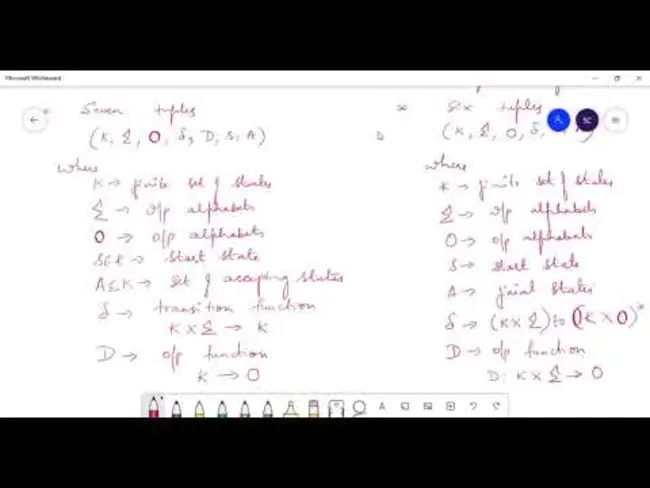 Microsoft Whiteboard
Seven tuples
(K, Σ, O, δ, D, s, A)
where
K → finite set of states
Σ → o/p alphabets
O → o/p alphabets
s ∈ K → start state
A ⊆ K → set of accepting states
δ → transition function
K × Σ → K
D → o/p function
K → O
* six tuples
(K, Σ, O, δ,
A SC
where
K → finite set of states
Σ → o/p alphabets
O → o/p alphabets
S → start state
A → final states
δ → (K × Σ) to (K × O)*
D → o/p function
D: K × Σ → O